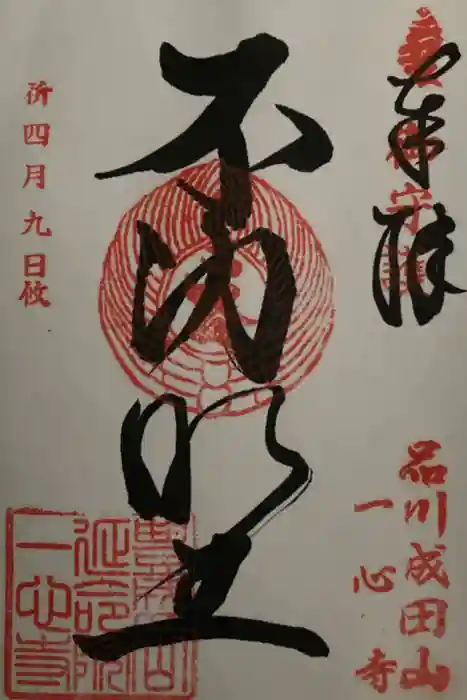 奉拝
品川成田山
一心寺
不動明王
折四月九日攸
延命院
一心寺